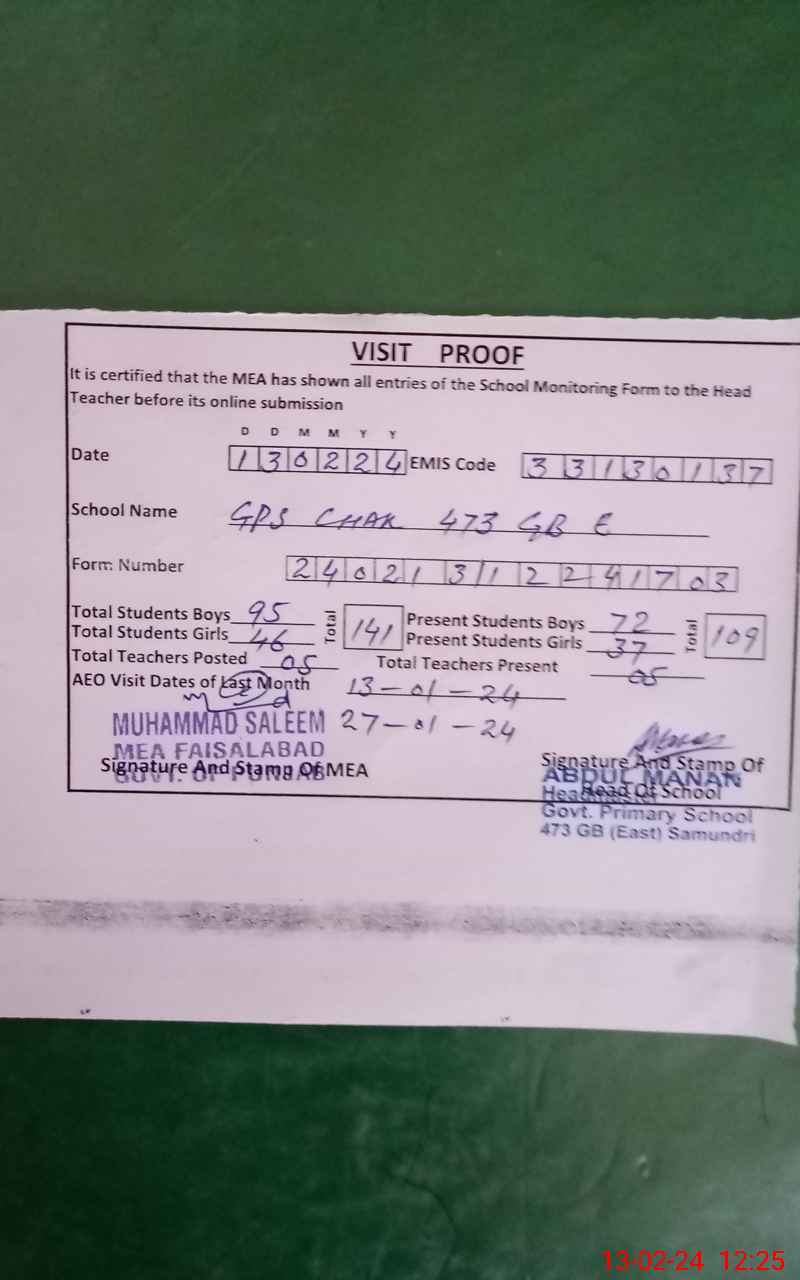 VISIT PROOF
It is certified that the MEA has shown all entries of the School Monitoring Form to the Head
Teacher before its online submission
D D M M Y Y
Date 130224 EMIS Code 33130137
School Name GPS CHAK 473 GB E
Form Number 2402131122241703
Total Students Boys 95 Total 141 Present Students Boys 72 Total 109
Total Students Girls 46 Present Students Girls 37
Total Teachers Posted 05 Total Teachers Present 05
AEO Visit Dates of Last Month 13-01-24
27-01-24
MUHAMMAD SALEEM
MEA FAISALABAD
GOVT. OF PUNJAB
Signature And Stamp Of MEA
Signature And Stamp Of
Head Of School
ABDUL MANAN
Headmaster
Govt. Primary School
473 GB (East) Samundri
13-02-24 12:25